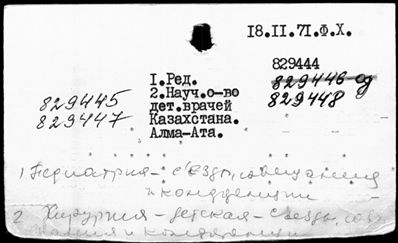 18.II.71.Ф.Х.
829444
I.Ред.
829446 од
2.Науч.о-во
829448
829445
дет.врачей
829447
Казахстана.
Алма-Ата.
1 Педиатрия - съезды, совещания
и конференции
2 Хирургия - детская - съезды, сове
щания и конференции